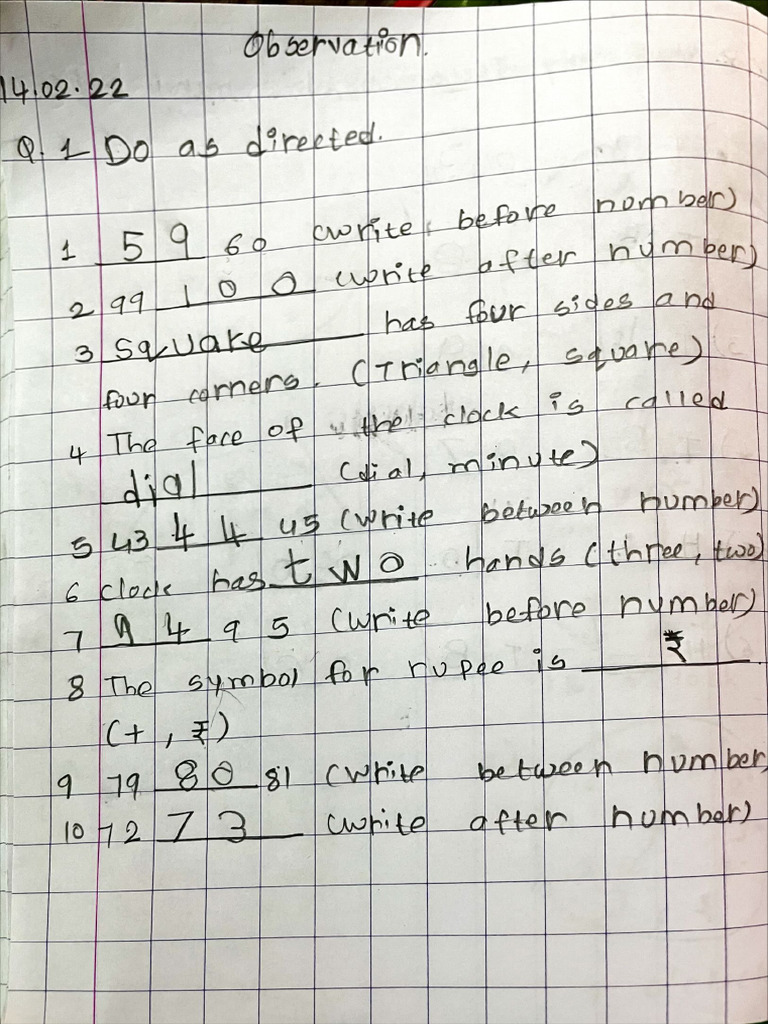 Observation.
14/02.22
Q. 1 Do as directed.
1 59 60 (write before nomber)
2 99 100 (write after number)
3 square has four sides and
four corners. (Triangle, square)
4 The face of the clock is called
dial (dial, minute)
5 43 44 45 (write between number)
6 clock has two hands (three, two)
7 94 95 (write before number)
8 The symbol for rupee is ₹
(+, ₹)
9 79 80 81 (write between number
10 72 73 (write after number)